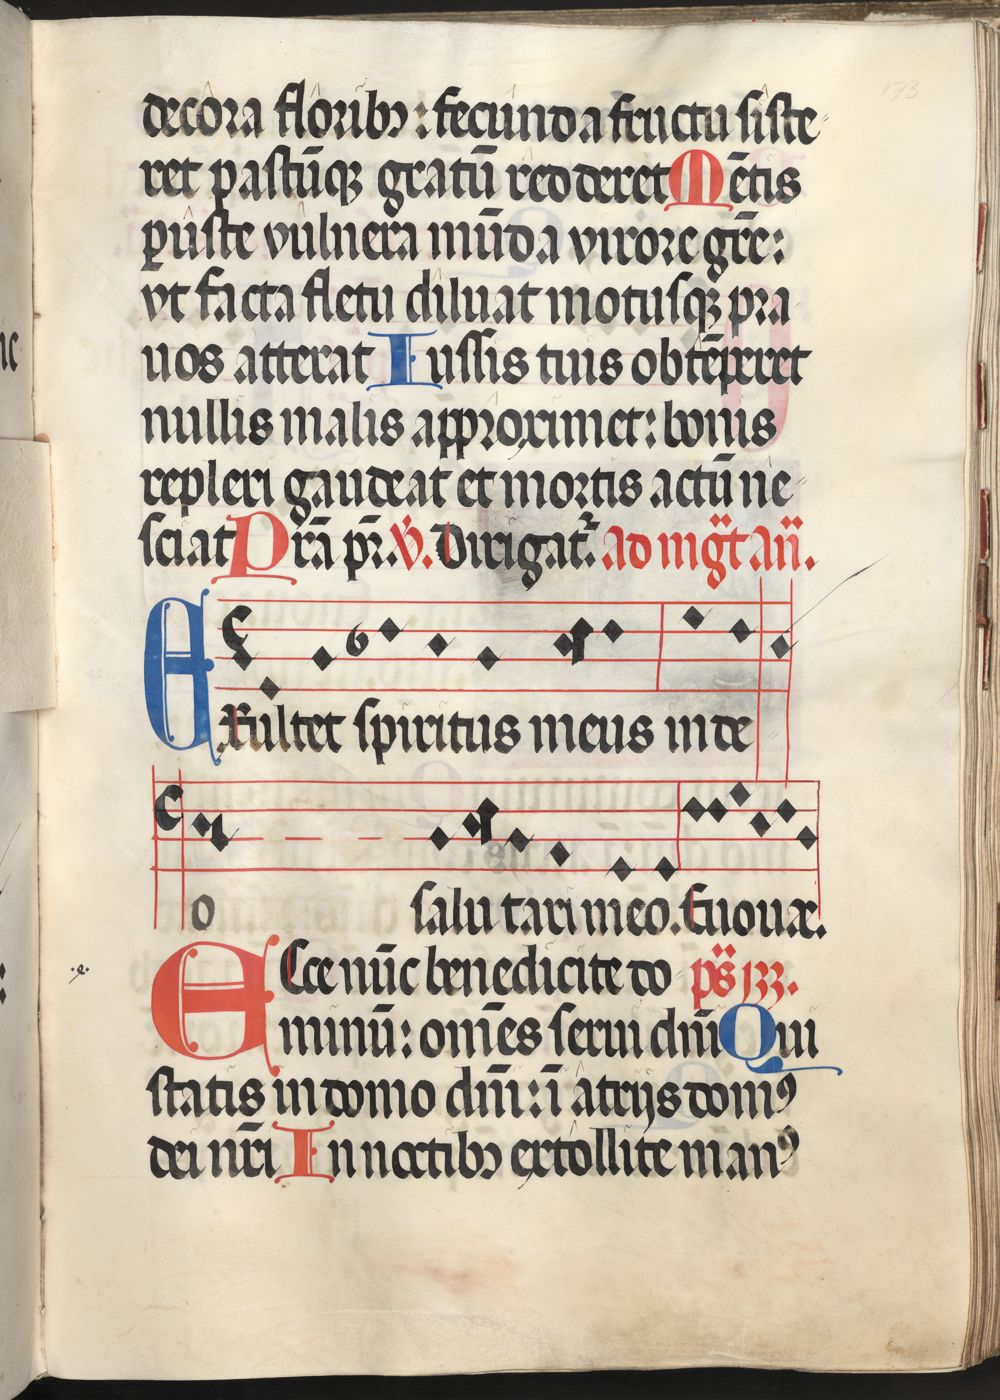 173
decora floribꝫ: fecunda fructu siste
ret pastūqꝫ gratū redderet Mētis
ꝑuste vulnera mūda virore grē:
vt facta fletu diluat motusqꝫ pra
uos atterat Iussis tuis obtēperet
nullis malis approximet: bonis
repleri gaudeat et mortis actū ne
sciat Prā pr̄. v̄. Dirigat᷑. ad mg̃t añ.
Exultet spiritus meus in de
o salutari meo. Euouae.
Ecce nūc benedicite do ps̄ 133.
minū: om̄es serui dn̄i Qui
statis in domo dn̄i: ī atrijs domꝰ
dei nr̄i In noctibꝫ extollite manꝰ
.e.